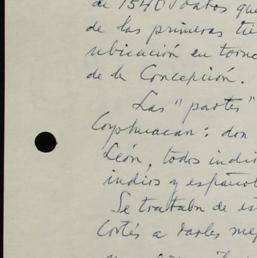 de 1540) datos que
de las primeras tie
ubicación en torno
de la Concepción.
Las "partes"
Coyohuacan: don
León, todos indi
indios y español
Se trataba de es
Cortés a darles me